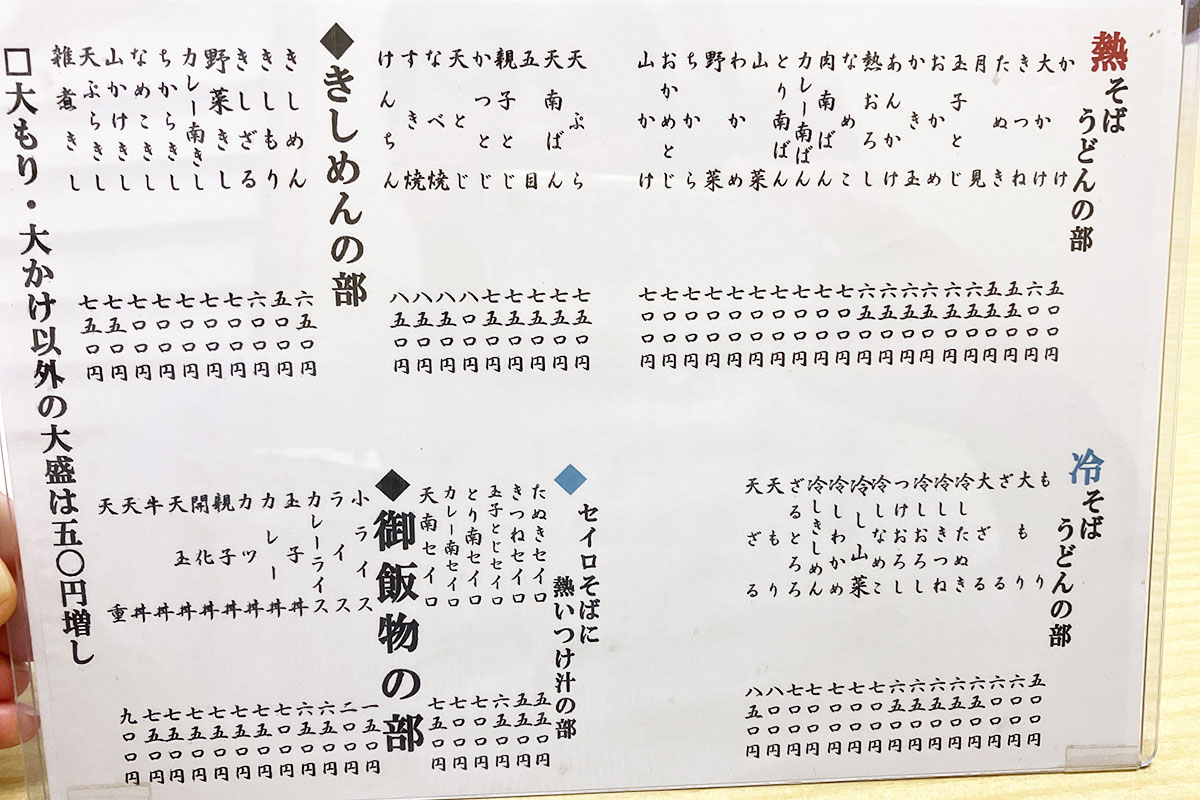 熱そば
うどんの部
かけ 五〇〇円
大かけ 六〇〇円
きつね 五五〇円
たぬき 五五〇円
月見 六五〇円
玉子とじ 六五〇円
おかめ 六五〇円
かき玉 六五〇円
あんかけ 六五〇円
熱おろし 六五〇円
なめこ 七〇〇円
肉南ばん 七〇〇円
カレー南ばん 七〇〇円
とり南ばん 七〇〇円
山菜 七〇〇円
わかめ 七〇〇円
野菜 七〇〇円
ちから 七〇〇円
おかめとじ 七〇〇円
山かけ 七〇〇円
天ぷら 七五〇円
天南ばん 七五〇円
五目 七五〇円
親子とじ 七五〇円
かつとじ 七五〇円
天とじ 八〇〇円
なべ焼 八五〇円
すき焼 八五〇円
けんちん 八五〇円
◆きしめんの部
きしめん 六五〇円
きしもり 五〇〇円
きしざる 六〇〇円
野菜きし 七〇〇円
カレー南きし 七〇〇円
ちからきし 七〇〇円
なめこきし 七〇〇円
山かけきし 七〇〇円
天ぷらきし 七五〇円
雑煮きし 七五〇円
冷そば
うどんの部
もり 五〇〇円
大もり 六〇〇円
ざる 六〇〇円
大ざる 六五〇円
冷したぬき 六五〇円
冷しきつね 六五〇円
冷しおろし 六五〇円
つけおろし 六五〇円
冷しなめこ 七〇〇円
冷し山菜 七〇〇円
冷しわかめ 七〇〇円
冷しきしめん 七〇〇円
ざるとろろ 七〇〇円
天もり 八〇〇円
天ざる 八五〇円
◆セイロそばに
熱いつけ汁の部
たぬきセイロ 五五〇円
きつねセイロ 五五〇円
玉子とじセイロ 六五〇円
とり南セイロ 七〇〇円
カレー南セイロ 七〇〇円
天南セイロ 七五〇円
◆御飯物の部
小ライス 一五〇円
ライス 二〇〇円
カレーライス 六五〇円
玉子丼 六五〇円
カレー丼 七〇〇円
カツ丼 七五〇円
親子丼 七五〇円
開化丼 七五〇円
天玉丼 七五〇円
牛丼 七五〇円
天丼 七五〇円
天重 九〇〇円
□大もり・大かけ以外の大盛は五〇円増し